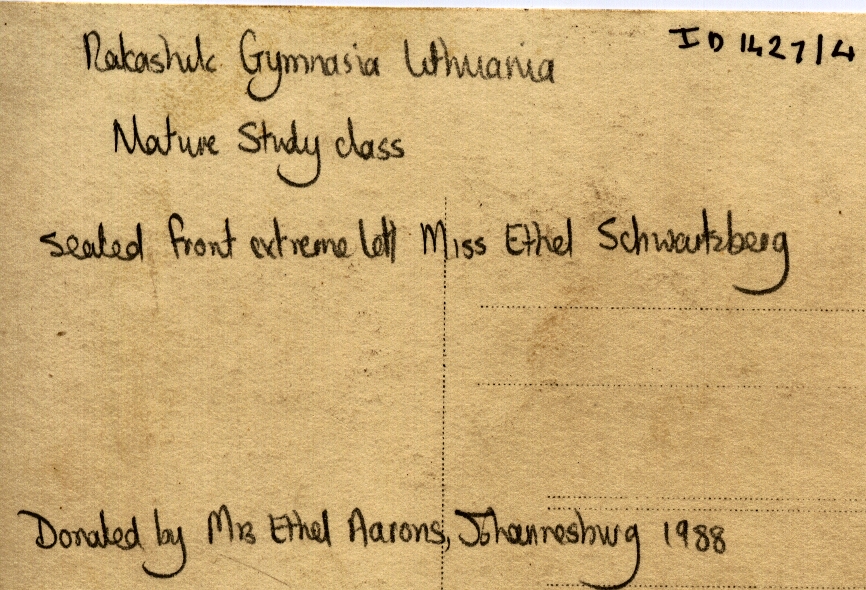 ID 1427/4
Rakashik Gymnasia Lithuania
Nature Study class
seated front extreme left Miss Ethel Schwartzberg
Donated by Mrs Ethel Aarons, Johannesburg 1988